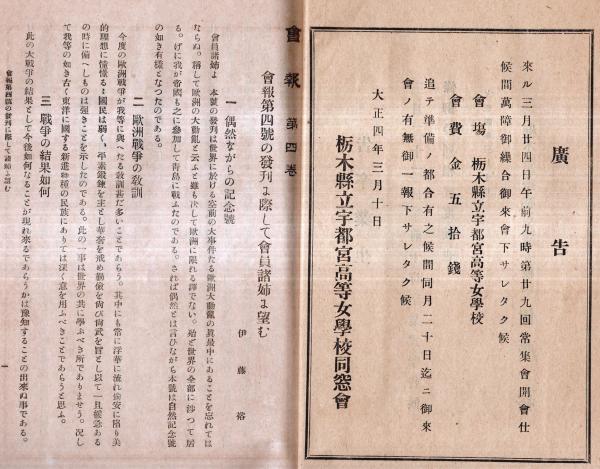 廣告
來ル三月廿四日午前九時第廿九回常集會開會仕
候間萬障御繰合御來會下サレタク候
會塲 栃木縣立宇都宮高等女學校
會費 金五拾錢
追テ準備ノ都合有之候間仝月二十日迄ニ御來
會ノ有無御一報下サレタク候
大正四年三月十日
栃木縣立宇都宮高等女學校同窓會
會報 第四卷
會報第四號の發刋に際して會員諸姉に望む
伊藤裕
一 偶然ながらの記念號
會員諸姉よ 本號の發刋は世界に於ける空前の大事件たる歐洲大動亂の眞最中にあることを忘れては
ならぬ。稱して歐洲の大動亂と云ふと雖も决して歐洲に限れる譯でない。殆ど世界の全部に渉つて居
る。げに我が帝國も之に參加して靑島に戰ふたのである。されば偶然とは言ひながら本號は自然記念號
の如き有樣となつたのである。
二 歐洲戰爭の敎訓
今度の歐洲戰爭が我等に與へたる敎訓甚だ多いことであらう。其中にも常に浮華に流れ偸安に陷り美
的理想に憧憬る國民は弱く、平素鍛鍊を主とし華奢を戒め勤儉を尙び尙武を旨とし以て一旦緩急ある
の時に備へしものは强きことを示したのである。此の一事は世界の共に學ぶべき所でありませう。况し
て我等の如き古く東洋に國する新進師種の民族にありては深く意を用ふべきことであらうと思ふ。
三 戰爭の結果如何
此の大戰爭の結果として今後如何なることが現れ來るであらうかは豫知することの出來ぬ事である。
會報第四號の發刋に際して諸姉に望む
一